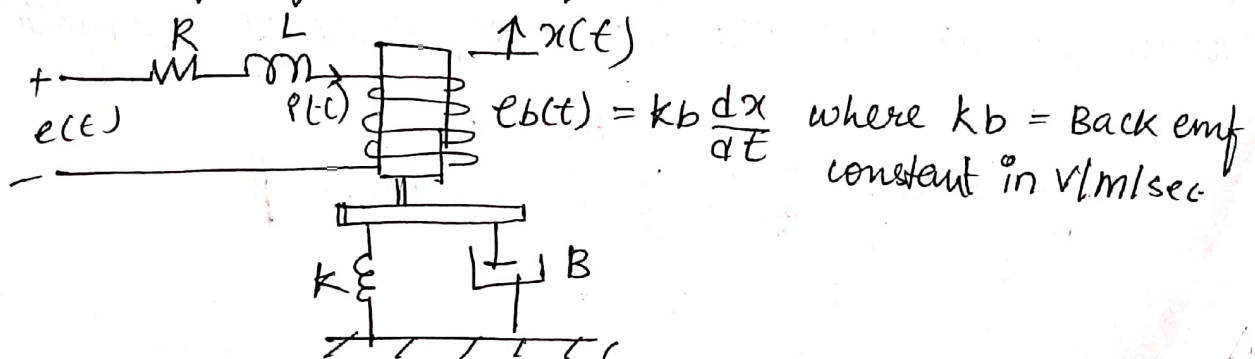 R L ↑ x(t)
+
e(t) i(t) eb(t) = kb dx/dt where kb = Back emf
constant in v/m/sec
−
K B